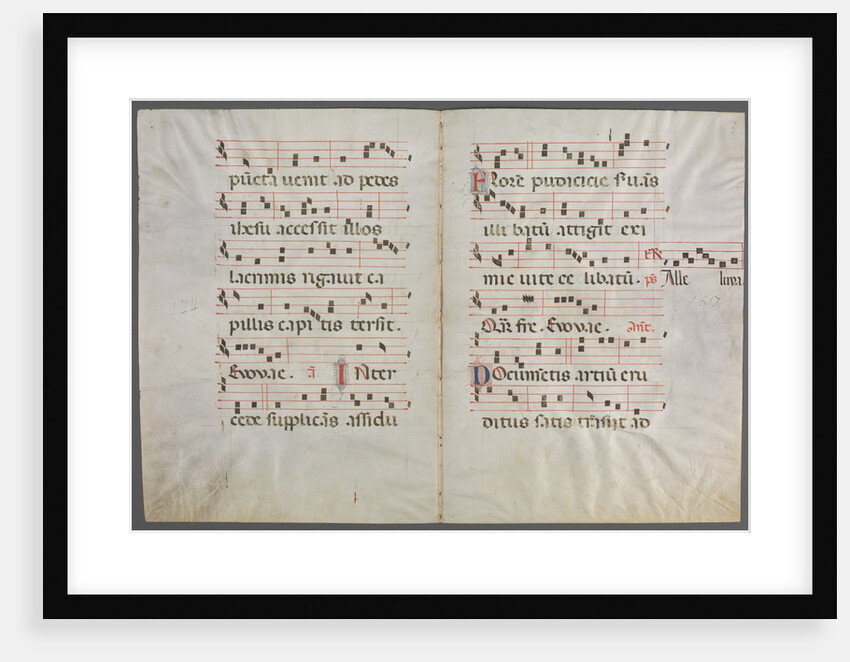 pūcta uenit ad pedes
ihesu accessit illos
lacrimis rigauit ca
pillis capi tis tersit.
Evovae. a Inter
cede supplicās assidu
Florē pudicicie suās
illi batū attigit exi
mie uite ce libatū. ps Alle luya
Evovae. ant.
Documētis artiū eru
ditus satis trāsiit ad